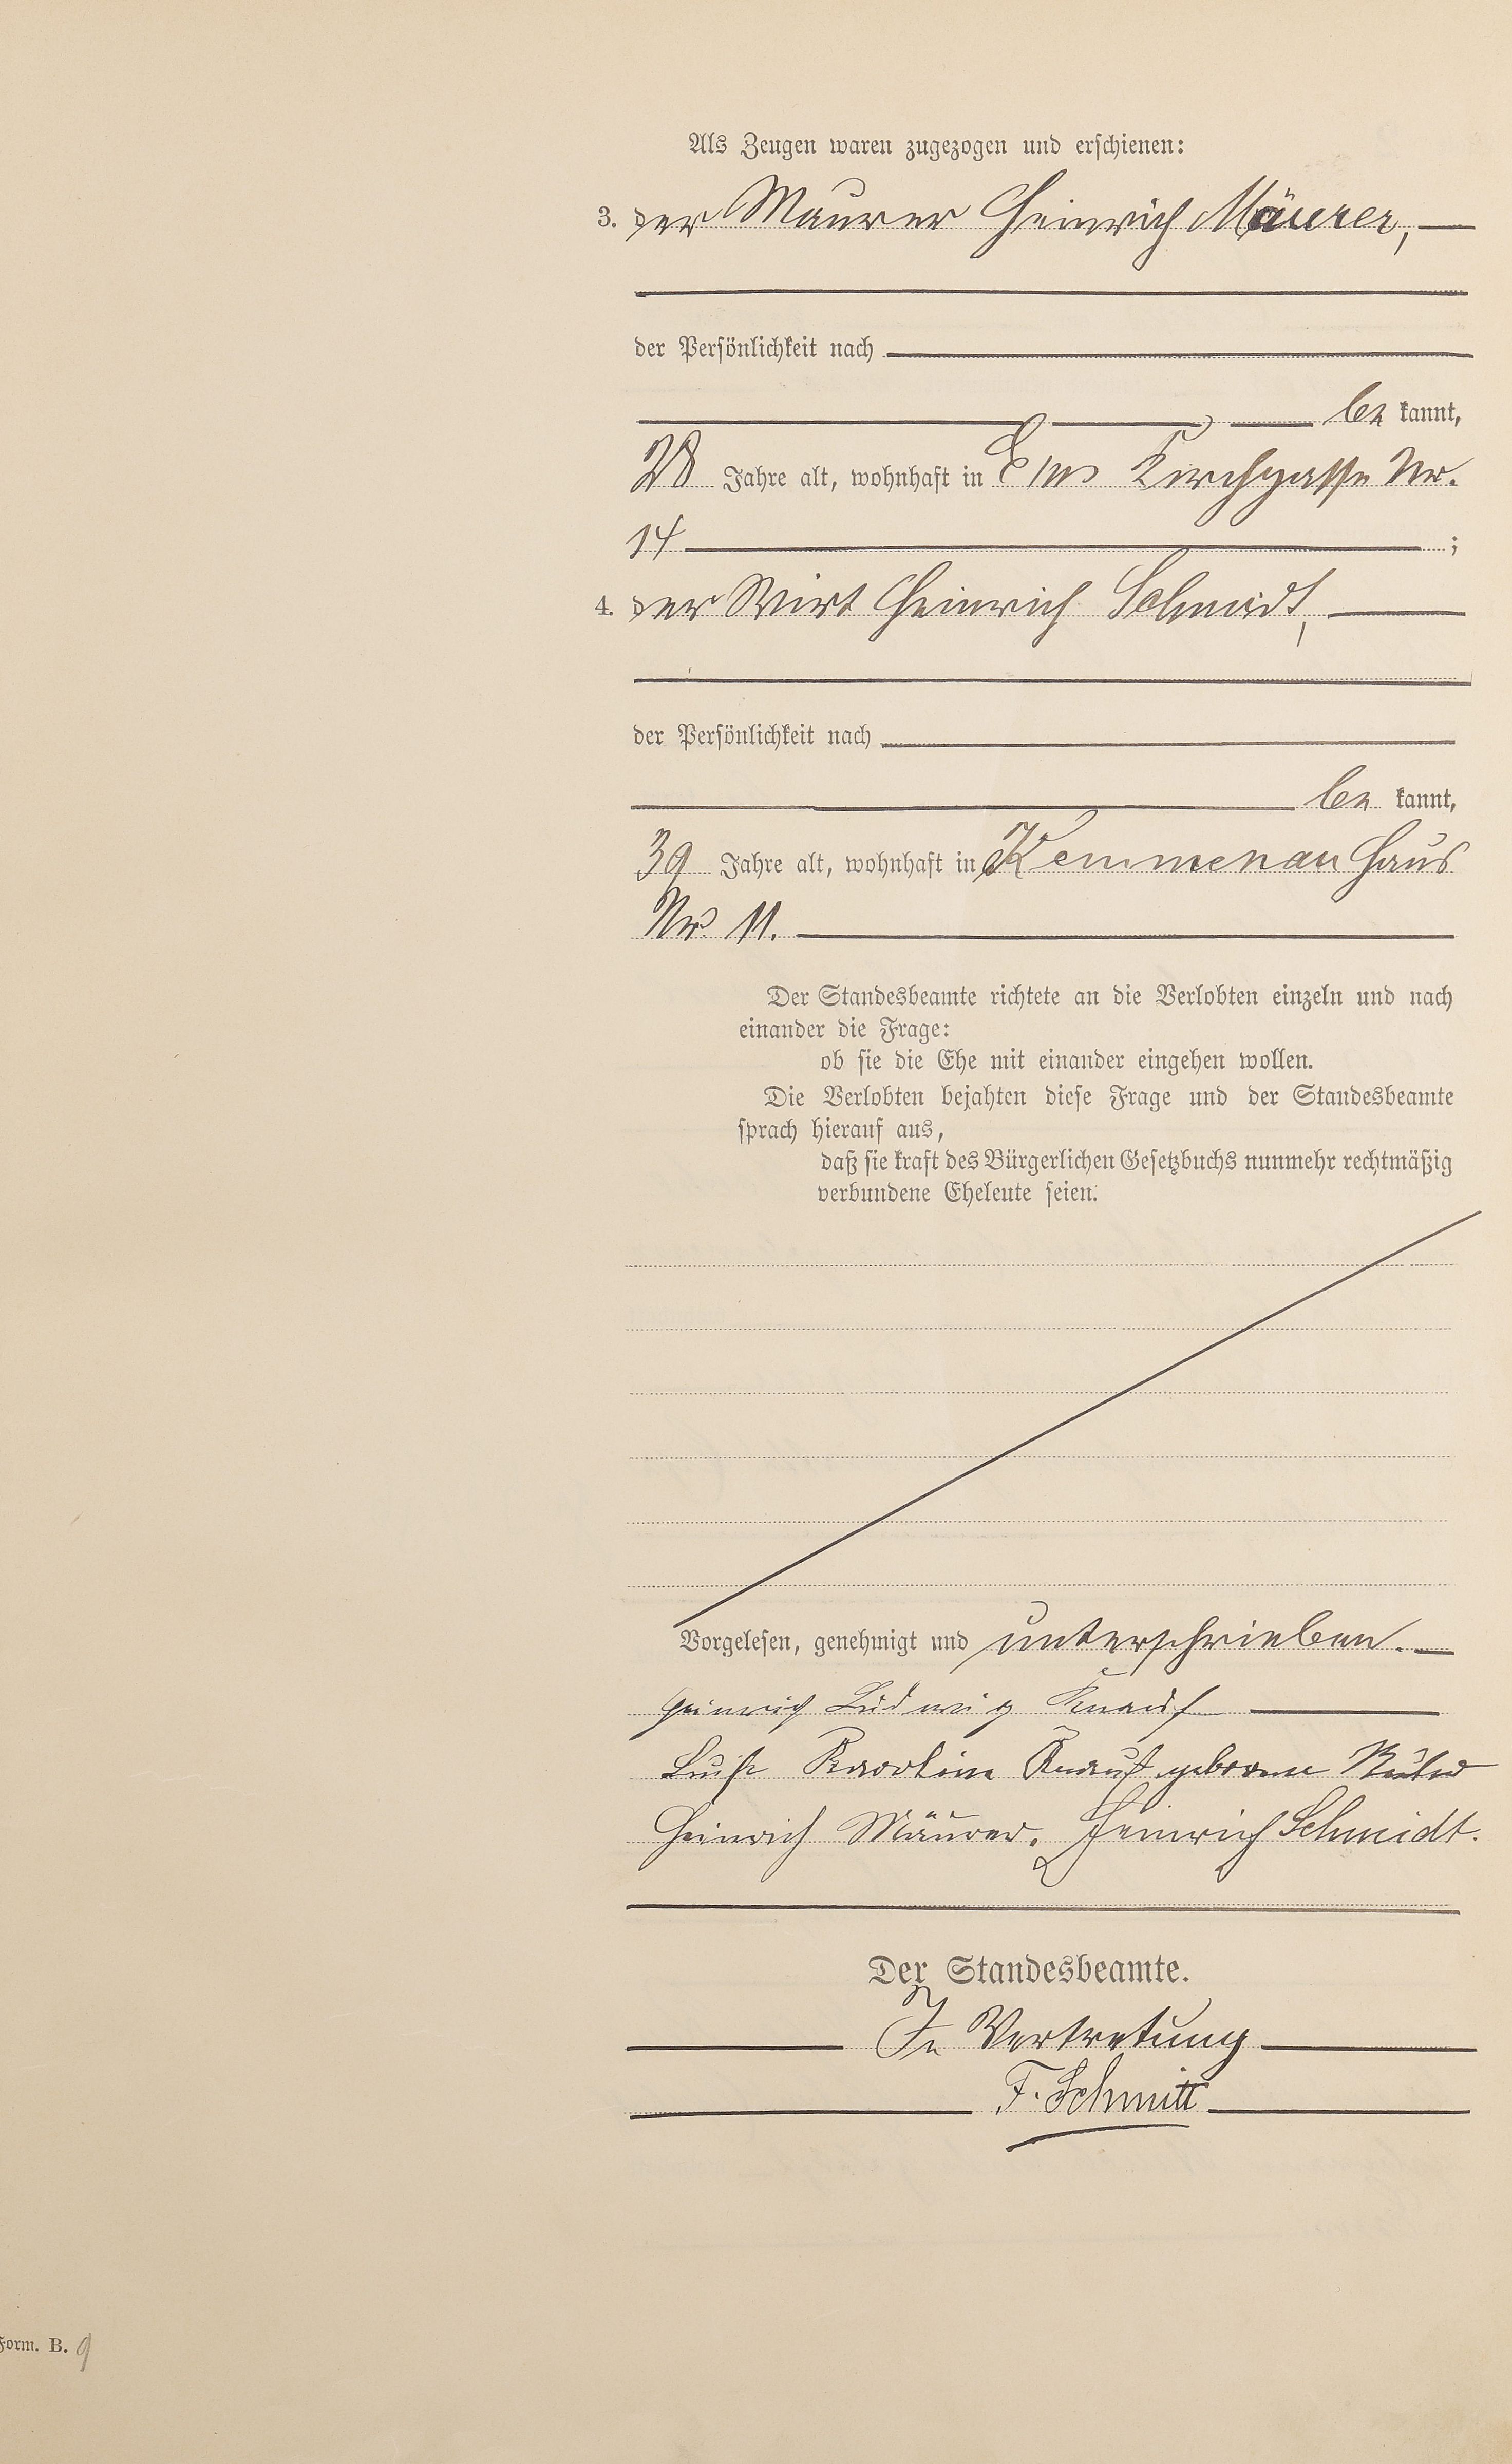 Als Zeugen waren zugezogen und erschienen:
3. der Maurer Heinrich Mäurer,
der Persönlichkeit nach
be kannt,
28 Jahre alt, wohnhaft in Ems Kirchgasse Nr.
14 ;
4. der Wirt Heinrich Schmidt,
der Persönlichkeit nach
be kannt,
39 Jahre alt, wohnhaft in Kemmenau Haus
Nr. 11.
Der Standesbeamte richtete an die Verlobten einzeln und nach
einander die Frage:
ob sie die Ehe mit einander eingehen wollen.
Die Verlobten bejahten diese Frage und der Standesbeamte
sprach hierauf aus,
daß sie kraft des Bürgerlichen Gesetzbuchs nunmehr rechtmäßig
verbundene Eheleute seien.
Vorgelesen, genehmigt und unterschrieben.
Heinrich Ludwig Knauf
Luise Karoline Knauf geborene
Heinrich Mäurer. Heinrich Schmidt.
Der Standesbeamte.
In Vertretung
F. Schmitt
Form. B. 9